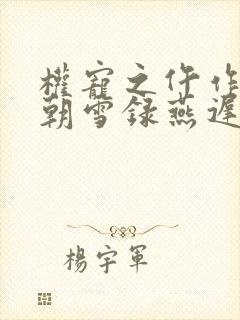 權寵之仵作
朝雪録燕遲
楊宇軍